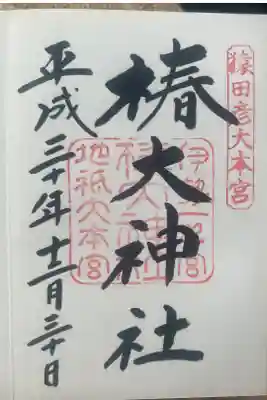 猿田彦大本宮
椿大神社
伊勢一之宮
椿大神社
地祇大本宮
平成三十年十二月三十日